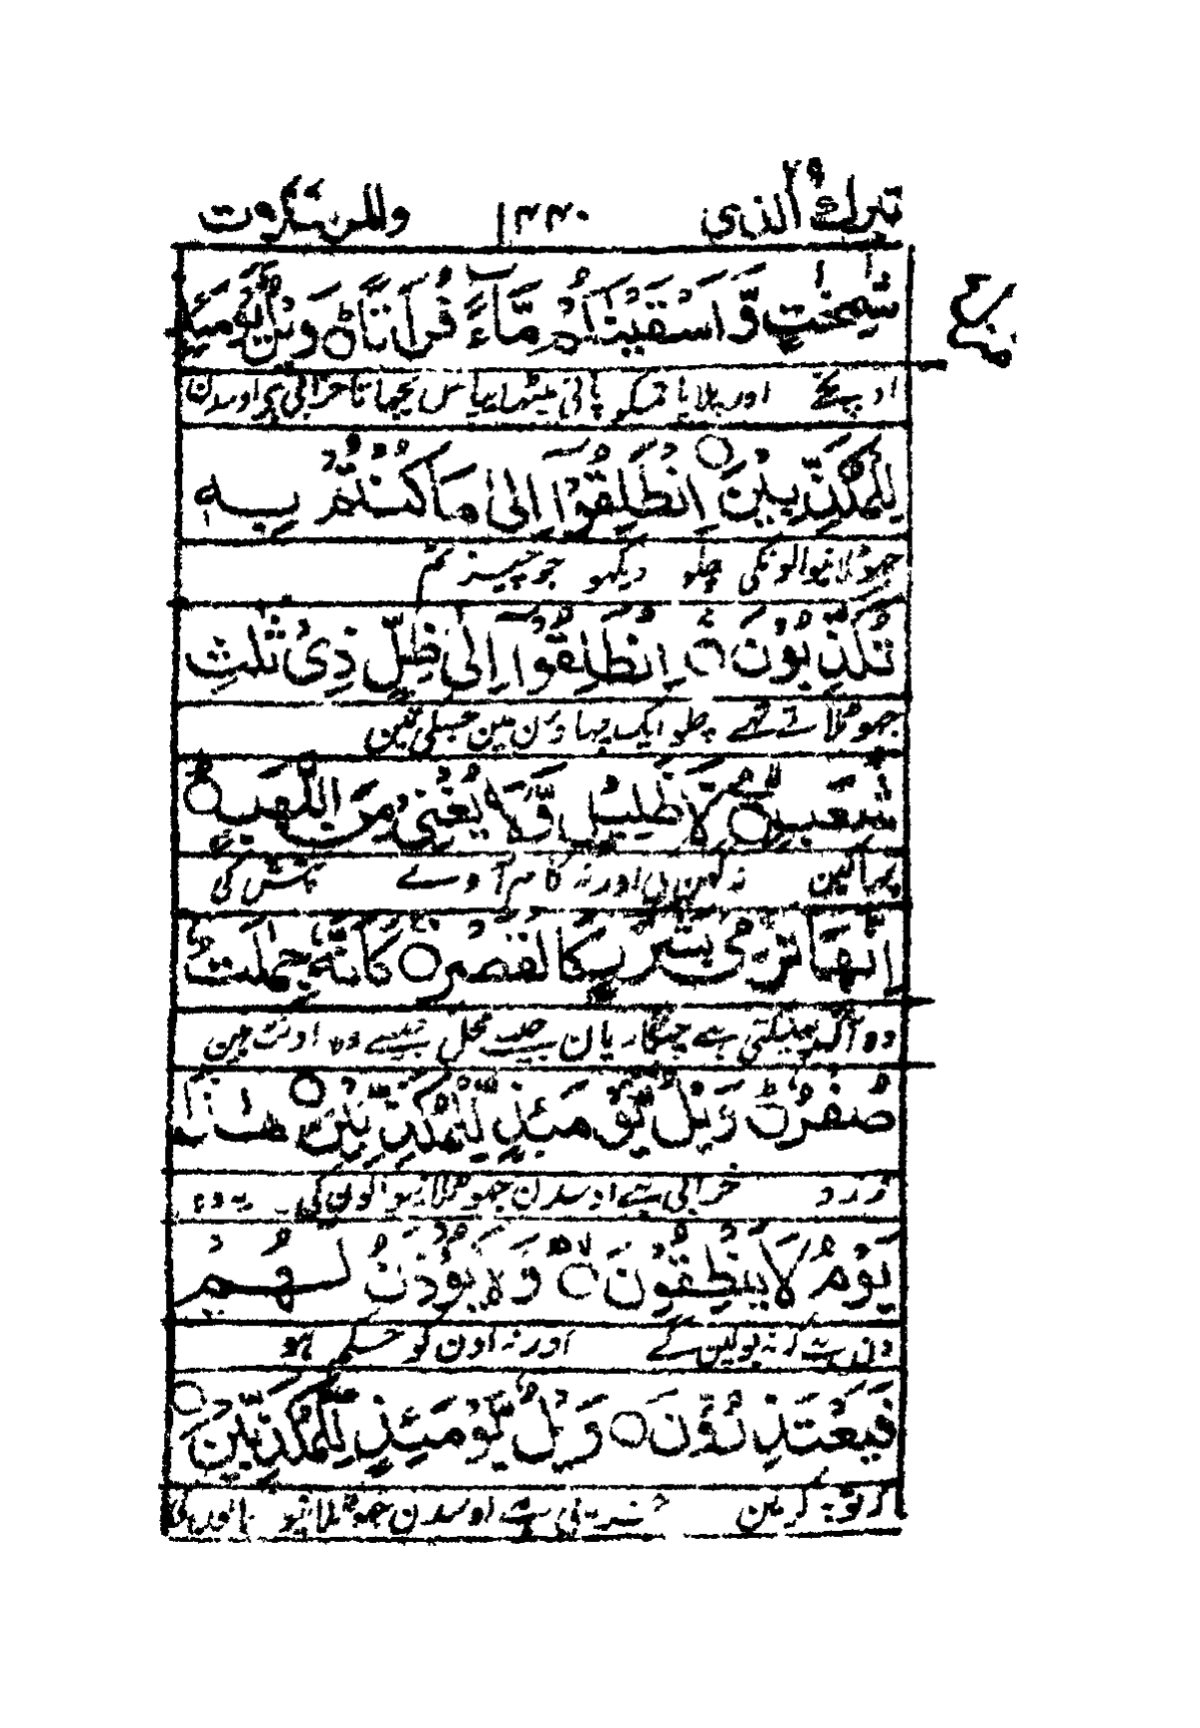 تبرك الذى ٢٩ ١٢٢٠ والمرسلات
شٰمِخٰتٍ وَّاَسْقَيْنٰكُمْ مَّآءً فُرَاتًا ۝ وَيْلٌ يَّوْمَئِذٍ
اونچے اور پلایا تمکو پانی میٹھا پیاس بجھاتا خرابی ہی اوسدن
لِّلْمُكَذِّبِيْنَ ۝ اِنْطَلِقُوْٓا اِلٰى مَا كُنْتُمْ بِهٖ
جھوٹلانیوالونکی چلو دیکھو جو چیز تم
تُكَذِّبُوْنَ ۝ اِنْطَلِقُوْٓا اِلٰى ظِلٍّ ذِىْ ثَلٰثِ
جھوٹلاتے تھے چلو ایک چھاون مین جسکی تین
شُعَبٍ ۝ لَّا ظَلِيْلٍ وَّلَا يُغْنِىْ مِنَ اللَّهَبِ ۝
پھانکین نہ گھن کی اور نہ کام آوے تپش کی
اِنَّهَا تَرْمِىْ بِشَرَرٍ كَالْقَصْرِ ۝ كَاَنَّهٗ جِمٰلَتٌ
وہ آگ پھینکتی ہے چنگاریان جیسے محل جیسے وہ اونٹ ہین
صُفْرٌ ۝ وَيْلٌ يَّوْمَئِذٍ لِّلْمُكَذِّبِيْنَ ۝ هٰذَا
زرد خرابی ہے اوسدن جھوٹلانیوالون کی یہ وہ
يَوْمُ لَا يَنْطِقُوْنَ ۝ وَلَا يُؤْذَنُ لَهُمْ
دن ہے کہ نہ بولین گے اور نہ اون کو حکم ہو
فَيَعْتَذِرُوْنَ ۝ وَيْلٌ يَّوْمَئِذٍ لِّلْمُكَذِّبِيْنَ ۝
کہ توبہ کرین خرابی ہے اوسدن جھوٹلانیوالون کی